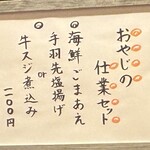 おやじの
仕業セット
●海鮮ごまあえ
●手羽先塩揚げ
or
牛スジ煮込み
一二〇〇円